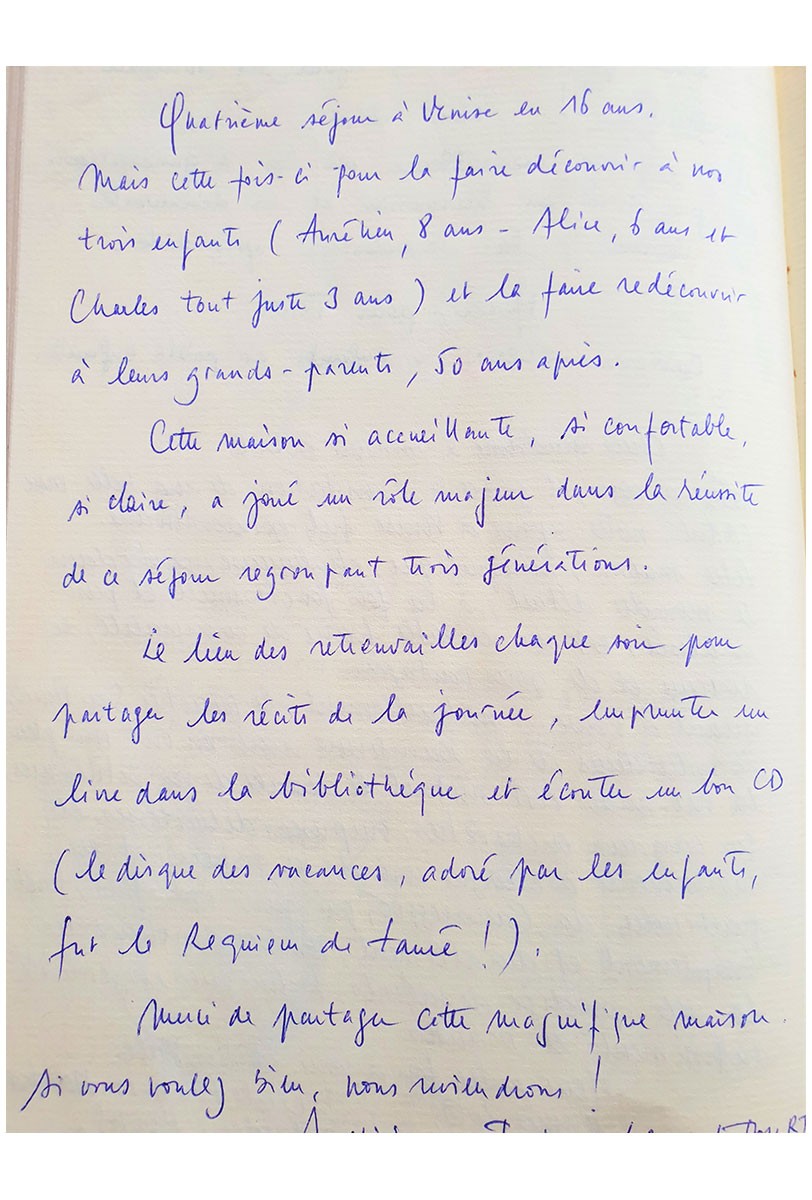 Quatrième séjour à Venise en 16 ans.
Mais cette fois-ci pour la faire découvrir à nos
trois enfants (Aurélien, 8 ans - Alice, 6 ans et
Charles tout juste 3 ans) et la faire redécouvrir
à leurs grands-parents, 50 ans après.
Cette maison si accueillante, si confortable,
si claire, a joué un rôle majeur dans la réussite
de ce séjour regroupant trois générations.
Le lieu des retrouvailles chaque soir pour
partager les récits de la journée, emprunter un
livre dans la bibliothèque et écouter un bon CD
(le disque des vacances, adoré par les enfants,
fut le Requiem de Fauré !).
Merci de partager cette magnifique maison.
Si vous voulez bien, nous reviendrons !